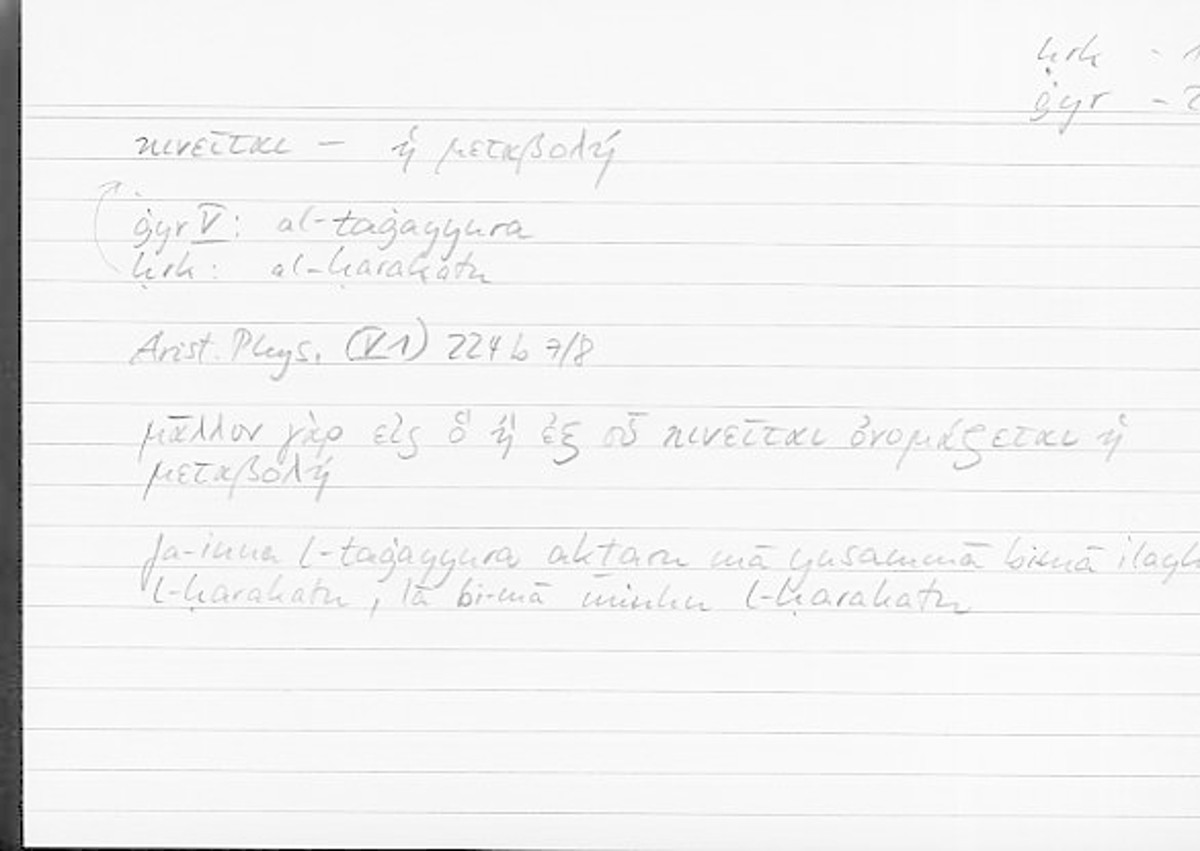 ḥrk -
ġyr -
κινεῖται — ἡ μεταβολή
ġyr V: al-taġayyura
ḥrk: al-ḥarakatu
Arist. Phys. (V 1) 224 b 7/8
μᾶλλον γὰρ εἰς ὃ ἢ ἐξ οὗ κινεῖται ὀνομάζεται ἡ
μεταβολή
fa-inna l-taġayyura aktaru mā yusammā bi-mā
l-ḥarakatu, lā bi-mā minhu l-ḥarakatu